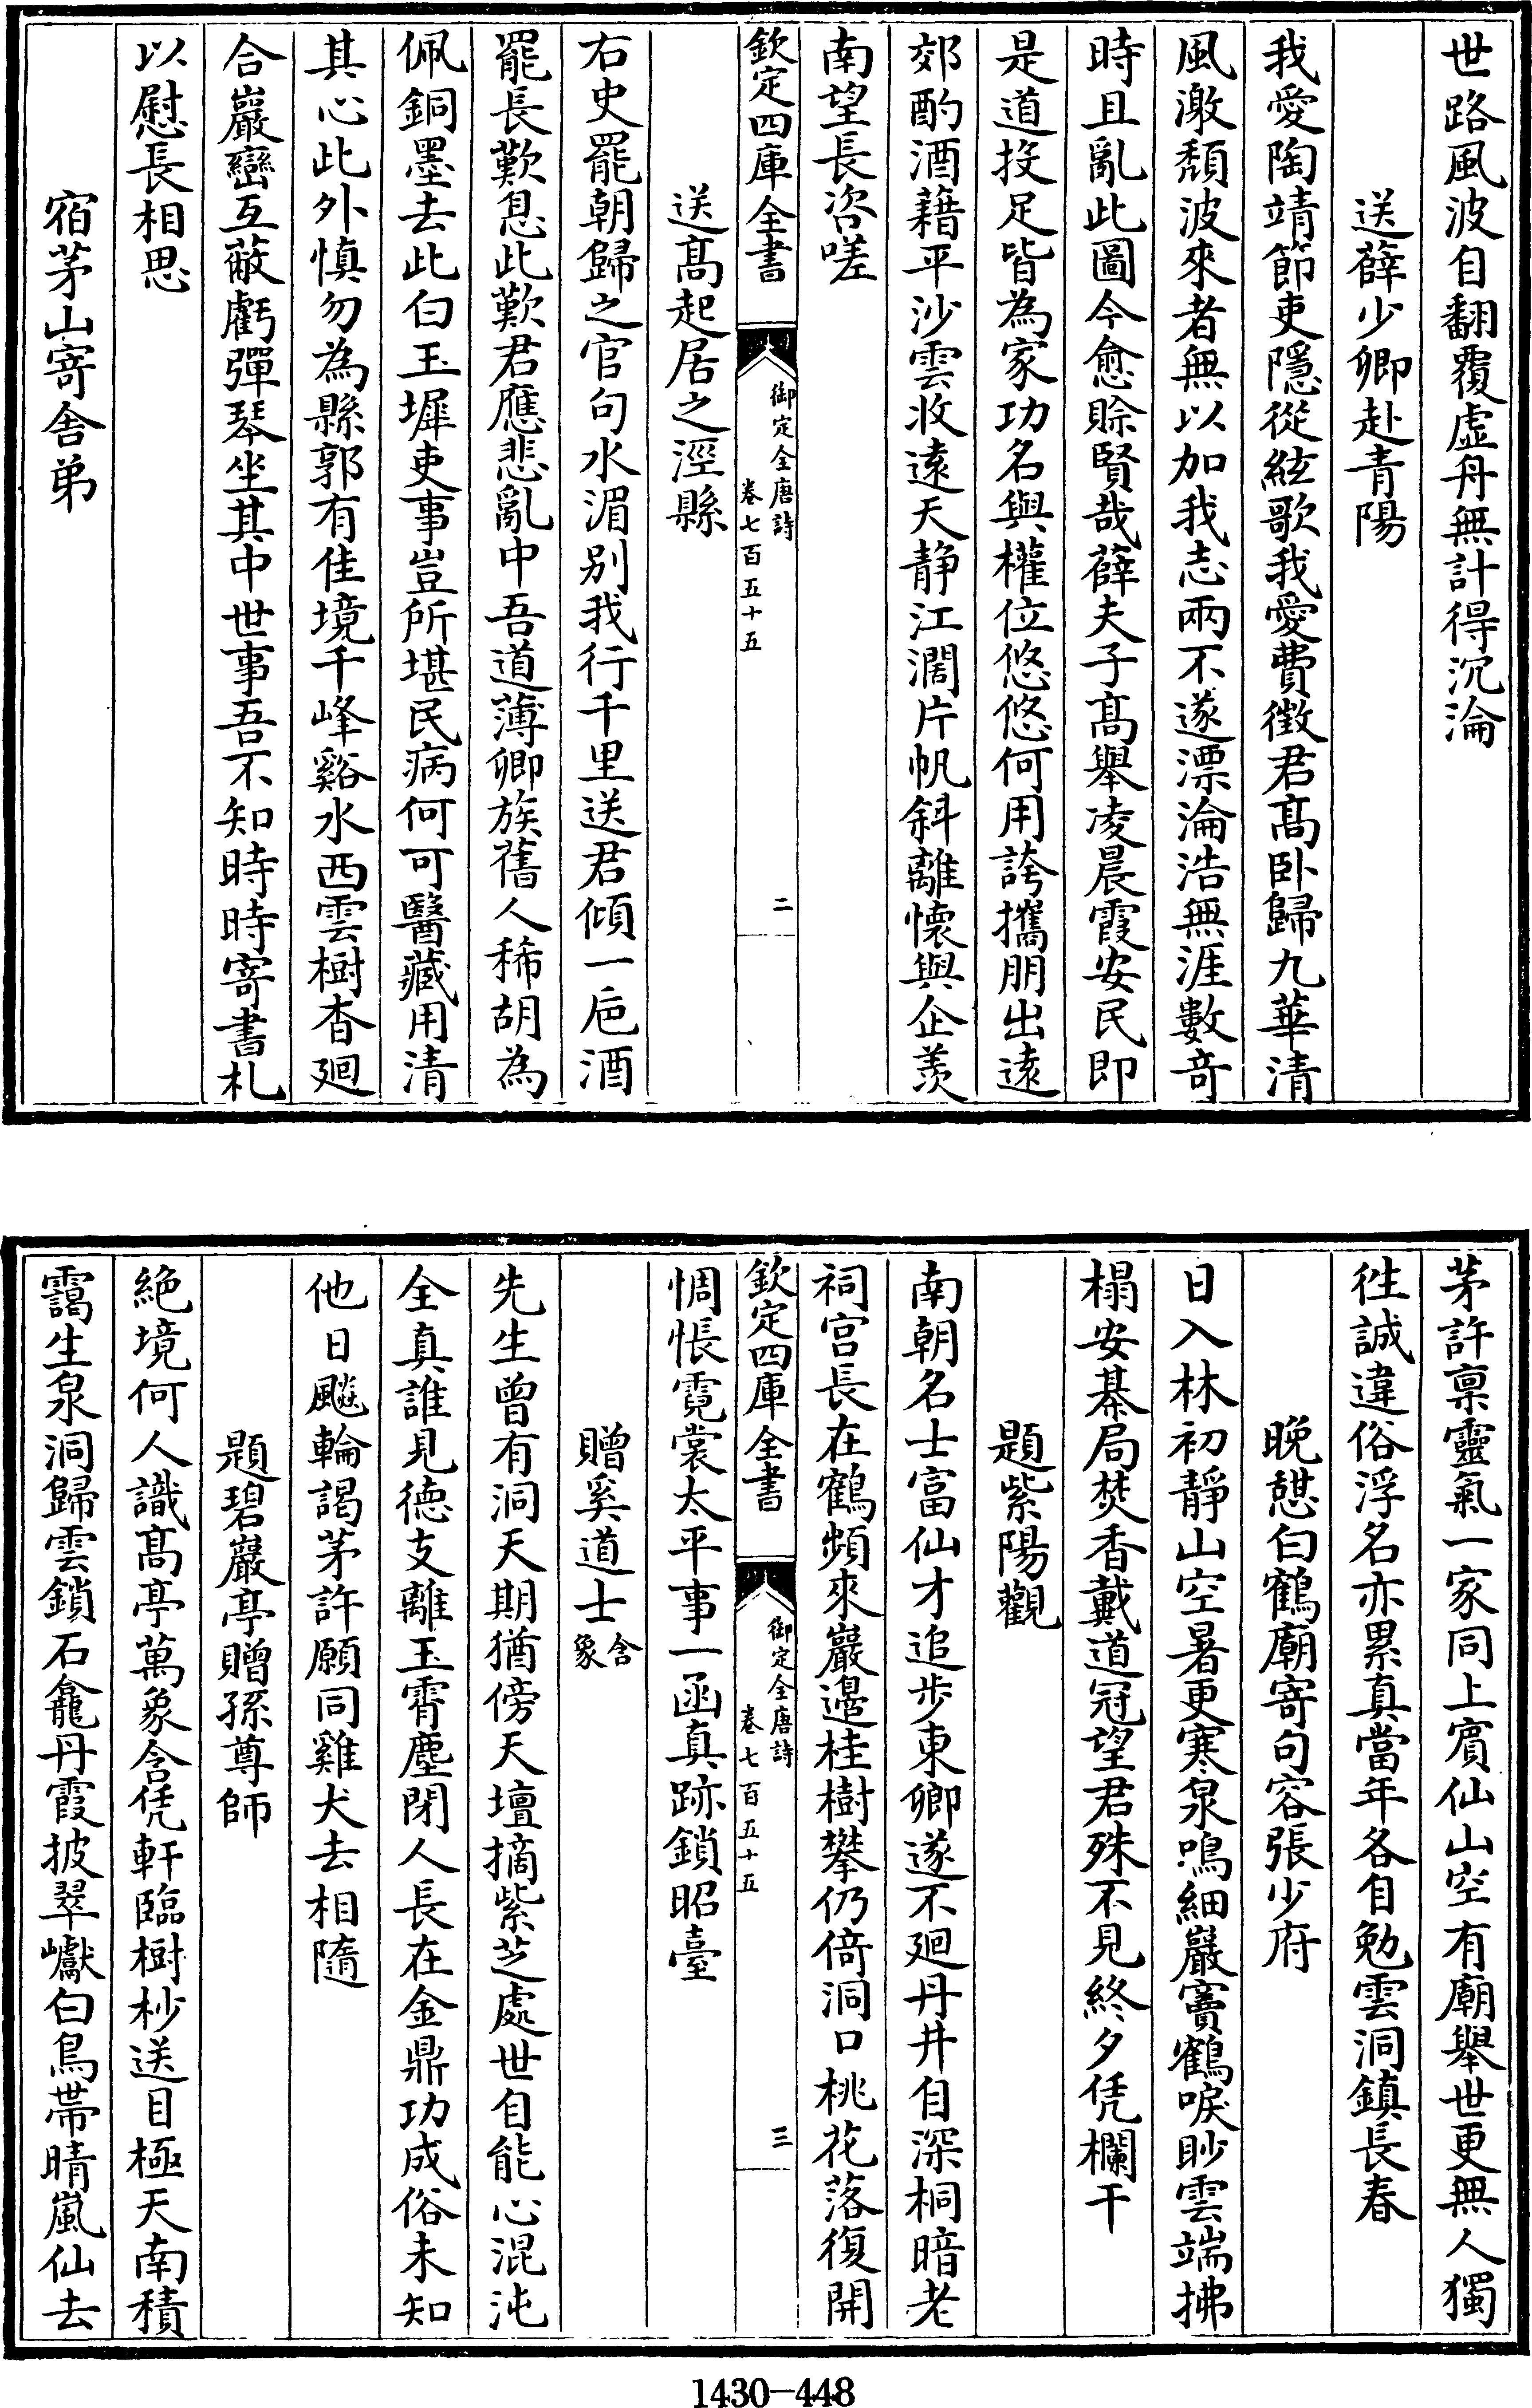 世路風波自翻覆虛舟無計得沉淪
送薛少卿赴青陽
我愛陶靖節吏隱從絃歌我愛費徵君髙卧歸九華清
風激頹波來者無以加我志兩不遂漂淪浩無涯數奇
時且亂此圖今愈賒賢哉薛夫子髙舉凌晨霞安民即
是道投足皆為家功名與權位悠悠何用誇攜朋出逺
郊酌酒藉平沙雲收逺天静江濶片帆斜離懷與企羨
南望長咨嗟
欽定四庫全書
御定全唐詩
卷七百五十五
二
送髙起居之涇縣
右史罷朝歸之官句水湄别我行千里送君傾一巵酒
罷長歎息此歎君應悲亂中吾道薄卿族舊人稀胡為
佩銅墨去此白玉墀吏事豈所堪民病何可醫藏用清
其心此外慎勿為縣郭有佳境千峰谿水西雲樹杳廻
合巖巒互蔽虧彈琴坐其中世事吾不知時時寄書札
以慰長相思
宿茅山寄舍弟
茅許稟靈氣一家同上賓仙山空有廟舉世更無人獨
徃誠違俗浮名亦累真當年各自勉雲洞鎮長春
晚憇白鶴廟寄句容張少府
日入林初靜山空暑更寒泉鳴細巖竇鶴唳眇雲端拂
榻安棊局焚香戴道冠望君殊不見終夕凭欄干
題紫陽觀
南朝名士富仙才追步東卿遂不廻丹井自深桐暗老
祠宫長在鶴頻來巖邉桂樹攀仍倚洞口桃花落復開
欽定四庫全書
御定全唐詩
卷七百五十五
三
惆悵霓裳太平事一函真跡鎖昭臺
贈奚道士含象
先生曾有洞天期猶傍天壇摘紫芝處世自能心混沌
全真誰見徳支離玉霄塵閉人長在金鼎功成俗未知
他日飈輪謁茅許願同雞犬去相隨
題碧巖亭贈孫尊師
絶境何人識髙亭萬象含凭軒臨樹杪送目極天南積
靄生泉洞歸雲鎖石龕丹霞披翠巘白鳥帶晴嵐仙去
1430-448